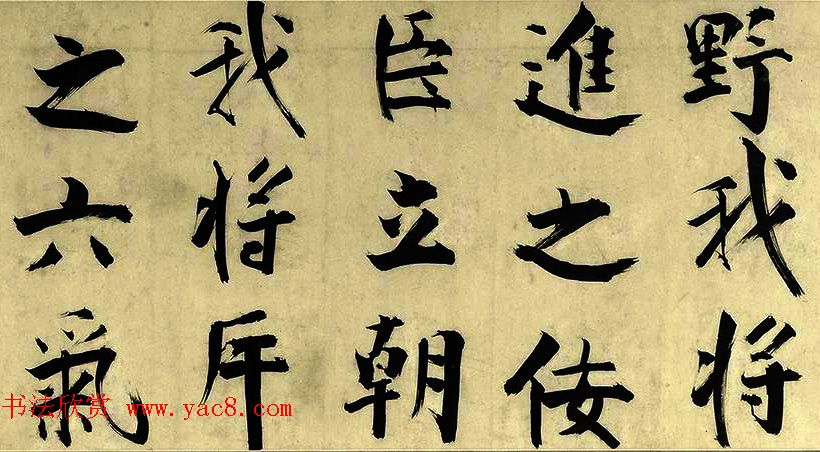 野我将
進之佞
臣立朝
我将斥
之六氣
书法欣赏 www.yac8.com